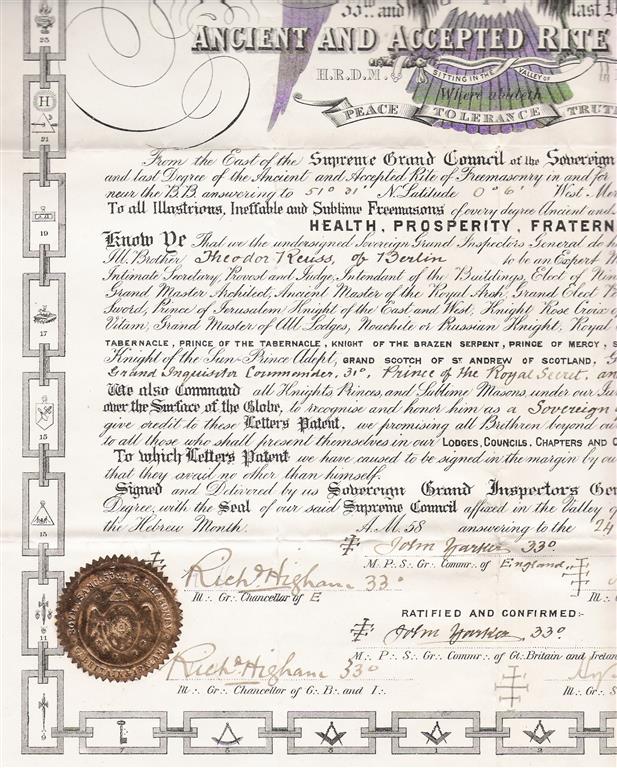 33rd and last
ANCIENT AND ACCEPTED RITE
H.R.D.M. SITTING IN THE VALLEY OF
Where abideth
PEACE TOLERANCE TRUTH
From the East of the Supreme Grand Council of the Sovereign
and last Degree of the Ancient and Accepted Rite of Freemasonry in and for
near the B.B. answering to 51° 31' N. Latitude 0° 6' West Mer
To all Illustrious, Ineffable and Sublime Freemasons of every degree Ancient and
HEALTH, PROSPERITY, FRATERN
Know Ye That we the undersigned Sovereign Grand Inspectors General do h
Ill. Brother Theodor Reuss, of Berlin to be an Expert M
Intimate Secretary, Provost and Judge, Intendent of the Buildings, Elect of Nin
Grand Master Architect, Ancient Master of the Royal Arch, Grand Elect
Sword, Prince of Jerusalem, Knight of the East and West, Knight Rose Croix of
Vitam, Grand Master of All Lodges, Noachite or Russian Knight, Royal
TABERNACLE, PRINCE OF THE TABERNACLE, KNIGHT OF THE BRAZEN SERPENT, PRINCE OF MERCY, S
Knight of the Sun-Prince Adept, GRAND SCOTCH OF ST ANDREW OF SCOTLAND, G
Grand Inquisitor Commander, 31°, Prince of the Royal Secret, an
We also Command all Knights, Princes, and Sublime Masons, under our Jur
over the Surface of the Globe, to recognise and honor him as a Sovereign
give credit to these Letters Patent, we promising all Brethren beyond ou
to all those who shall present themselves in our LODGES, COUNCILS, CHAPTERS AND C
To which Letters Patent we have caused to be signed in the margin by ou
that they avail no other than himself.
Signed and Delivered by us Sovereign Grand Inspectors Gen
Degree, with the Seal of our said Supreme Council affixed in the Valley of
the Hebrew Month. A.M. 58 answering to the 24
John Yarker 33°
M. P. S. Gr. Commr. of England
Richd Higham 33°
Ill. Gr. Chancellor of E
Ill. G
RATIFIED AND CONFIRMED:-
John Yarker 33°
M. P. S. Gr. Commr. of Gt. Britain and Irelan
Richd Higham 33°
Ill. Gr. Chancellor of G. B. and I.
Ill. Gr. S
23
H
21
19
17
15
13
11
9
7
5
3
1
2